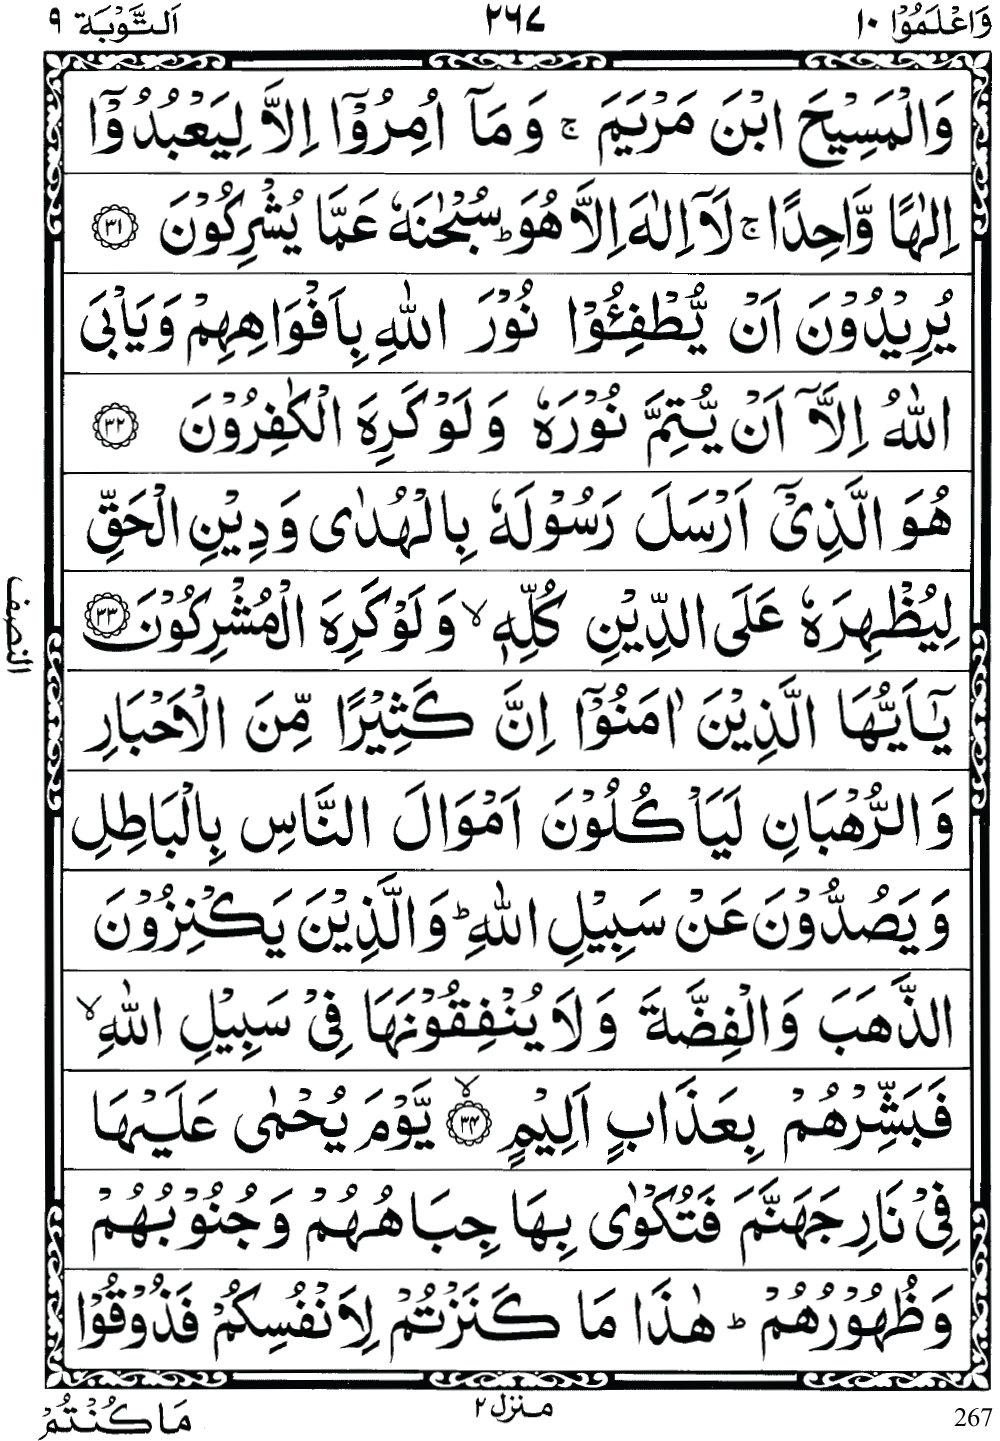 وَاعْلَمُوْٓا ١٠ ٢٦٧ اَلتَّوْبَة ٩
وَالْمَسِيْحَ ابْنَ مَرْيَمَ ۚ وَ مَاۤ اُمِرُوْۤا اِلَّا لِيَعْبُدُوْۤا
اِلٰهًا وَّاحِدًا ۚ لَاۤ اِلٰهَ اِلَّا هُوَ ؕ سُبْحٰنَهٗ عَمَّا يُشْرِكُوْنَ ﴿۳۱﴾
يُرِيْدُوْنَ اَنْ يُّطْفِـُٔوْا نُوْرَ اللّٰهِ بِاَفْوَاهِهِمْ وَيَاْبَى
اللّٰهُ اِلَّاۤ اَنْ يُّتِمَّ نُوْرَهٗ وَ لَوْ كَرِهَ الْكٰفِرُوْنَ ﴿۳۲﴾
هُوَ الَّذِىْۤ اَرْسَلَ رَسُوْلَهٗ بِالْهُدٰى وَ دِيْنِ الْحَقِّ
لِيُظْهِرَهٗ عَلَى الدِّيْنِ كُلِّهٖ ۙ وَ لَوْ كَرِهَ الْمُشْرِكُوْنَ ﴿۳۳﴾
النصف
يٰۤاَيُّهَا الَّذِيْنَ اٰمَنُوْۤا اِنَّ كَثِيْرًا مِّنَ الْاَحْبَارِ
وَ الرُّهْبَانِ لَيَاْكُلُوْنَ اَمْوَالَ النَّاسِ بِالْبَاطِلِ
وَ يَصُدُّوْنَ عَنْ سَبِيْلِ اللّٰهِ ؕ وَ الَّذِيْنَ يَكْنِزُوْنَ
الذَّهَبَ وَ الْفِضَّةَ وَ لَا يُنْفِقُوْنَهَا فِىْ سَبِيْلِ اللّٰهِ ۙ
فَبَشِّرْهُمْ بِعَذَابٍ اَلِيْمٍ ﴿۳۴﴾ ۙ يَّوْمَ يُحْمٰى عَلَيْهَا
فِىْ نَارِ جَهَنَّمَ فَتُكْوٰى بِهَا جِبَاهُهُمْ وَ جُنُوْبُهُمْ
وَ ظُهُوْرُهُمْ ؕ هٰذَا مَا كَنَزْتُمْ لِاَنْفُسِكُمْ فَذُوْقُوْا
267 منزل ٢ مَا كُنْتُمْ